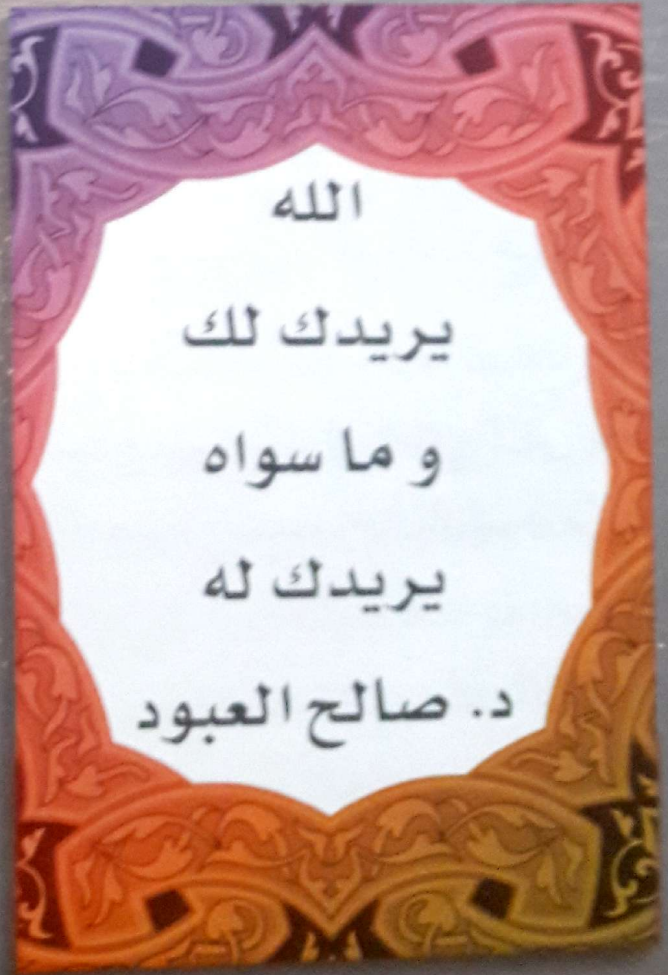 الله
يريدك لك
و ما سواه
يريدك له
د. صالح العبود